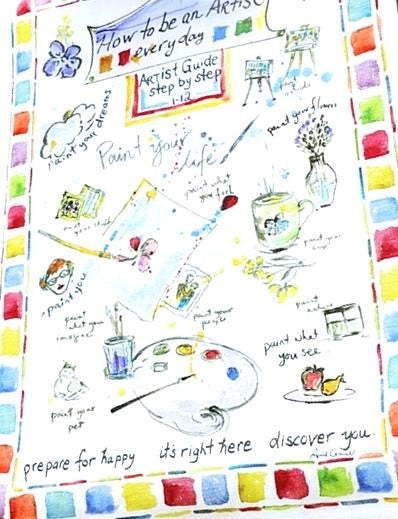 How to be an Artist
everyday
ARTIST GUIDE
step by step
1-12
paint your dreams
paint your flowers
Paint your
life
paint what
you feel
paint your
paint you
paint
what you
imagine
paint your
people
paint
paint what
you see
paint your
pet
prepare for happy it's right here discover you